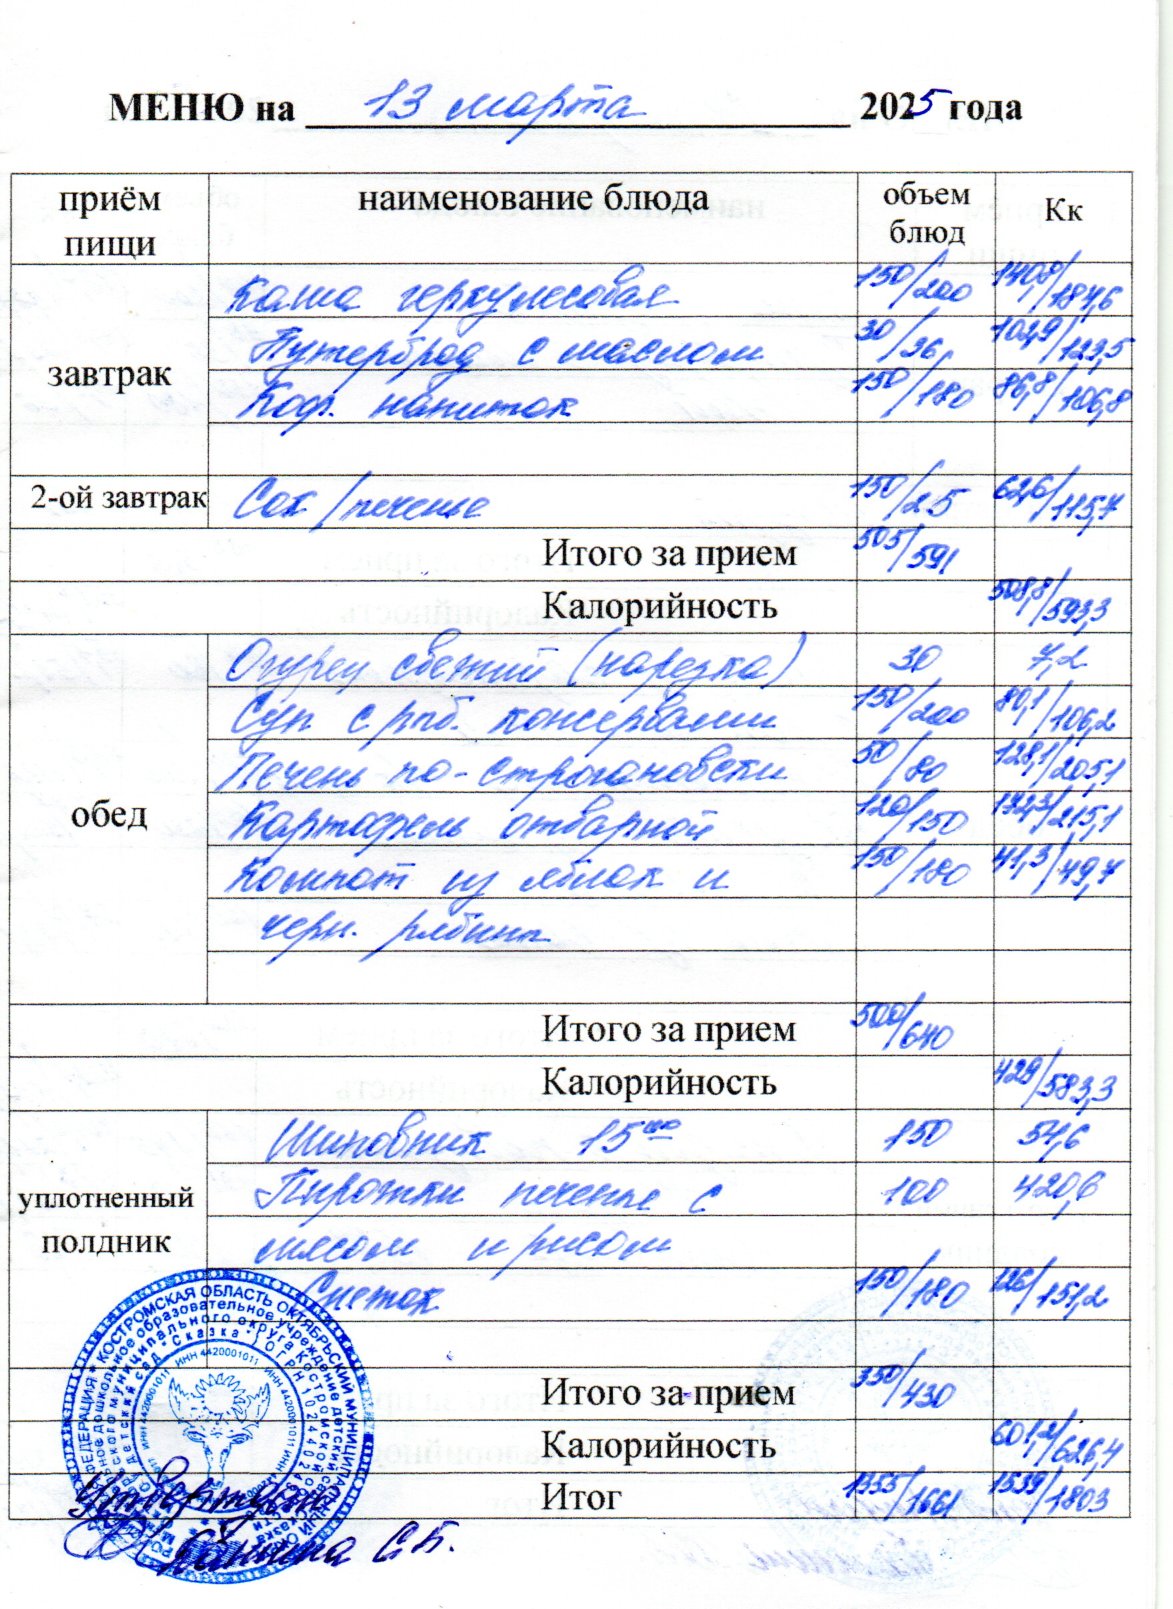 МЕНЮ на 13 марта 2025 года
приём пищи наименование блюда объем блюд Кк
завтрак
Каша геркулесовая 150/200 140,8/187,6
Бутерброд с маслом 30/36 102,9/123,5
Коф. напиток 150/180 86,8/106,8
2-ой завтрак Сок/печенье 150/25 62,6/115,7
Итого за прием 505/591
Калорийность 508,8/593,3
обед
Огурец свежий (нарезка) 30 7,2
Суп с рыб. консервами 150/200 80,1/106,2
Печень по-строгановски 50/80 128,1/205,1
Картофель отварной 120/150 172,3/215,1
Компот из яблок и 150/180 41,3/49,7
черн. рябины
Итого за прием 500/640
Калорийность 429/583,3
уплотненный полдник
Шиповник 15 00 150 54,6
Пирожки печеные с 100 420,6
мясом и рисом
Снежок 150/180 126/151,2
Итого за прием 350/430
Калорийность 601,2/626,4
Итог 1355/1661 1539/1803
КОСТРОМСКАЯ ОБЛАСТЬ ОКТЯБРЬСКИЙ МУНИЦИПАЛЬНЫЙ
дошкольное образовательное учреждение детский сад
муниципального округа Костромской
Детский сад "Сказка"
ИНН 4420001011
Утверждаю
С.Б.